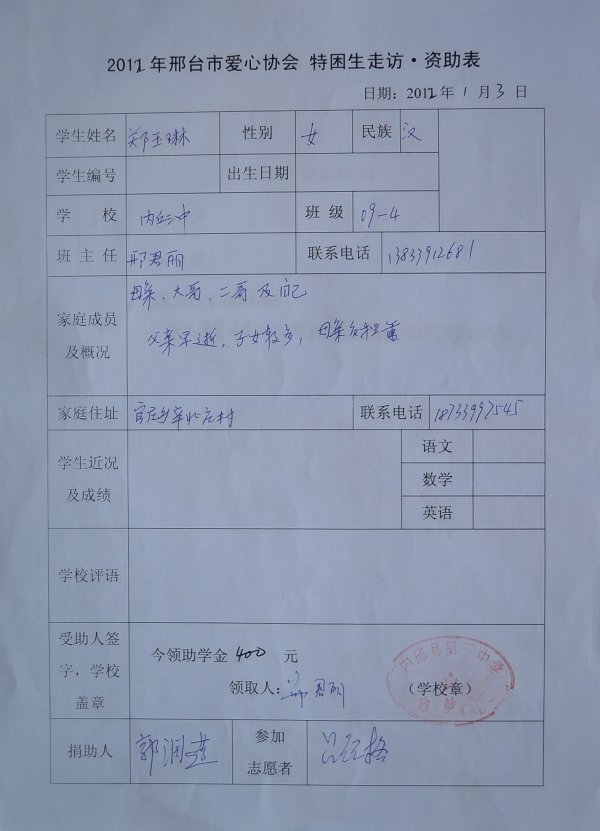 2012年邢台市爱心协会 特困生走访·资助表
日期：2012年1月3日
学生姓名 郑玉琳 性别 女 民族 汉
学生编号 出生日期
学 校 内丘三中 班 级 09-4
班 主 任 邢君丽 联系电话 13833912681
家庭成员及概况
母亲、大哥、二哥及自己
父亲早逝，子女较多，母亲负担重
家庭住址 官庄乡辛北庄村 联系电话 18733997545
学生近况及成绩
语文
数学
英语
学校评语
受助人签字，学校盖章
今领助学金 400 元
领取人： （学校章）
内邱县第三中学
捐助人 郭润莲 参加志愿者